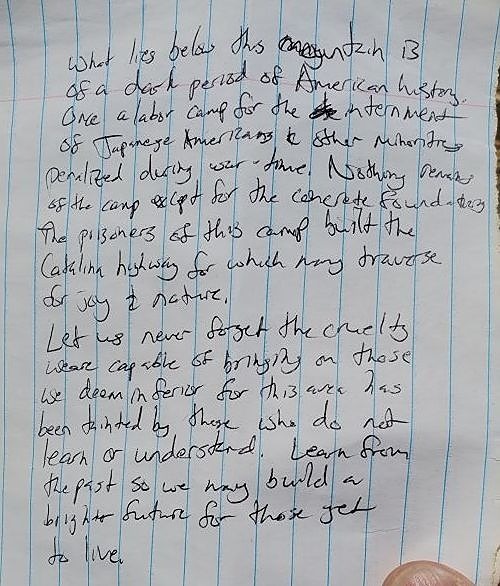 What lies below this mountain is
of a dark period of American history.
Once a labor camp for the internment
of Japanese Americans & other minorities
penalized during war-time. Nothing remains
of the camp except for the concrete foundations
The prisoners of this camp built the
Catalina highway for which many traverse
for joy & nature.
Let us never forget the cruelty
we are capable of bringing on those
we deem inferior for this area has
been tainted by those who do not
learn or understand. Learn from
the past so we may build a
brighter future for those yet
to live.